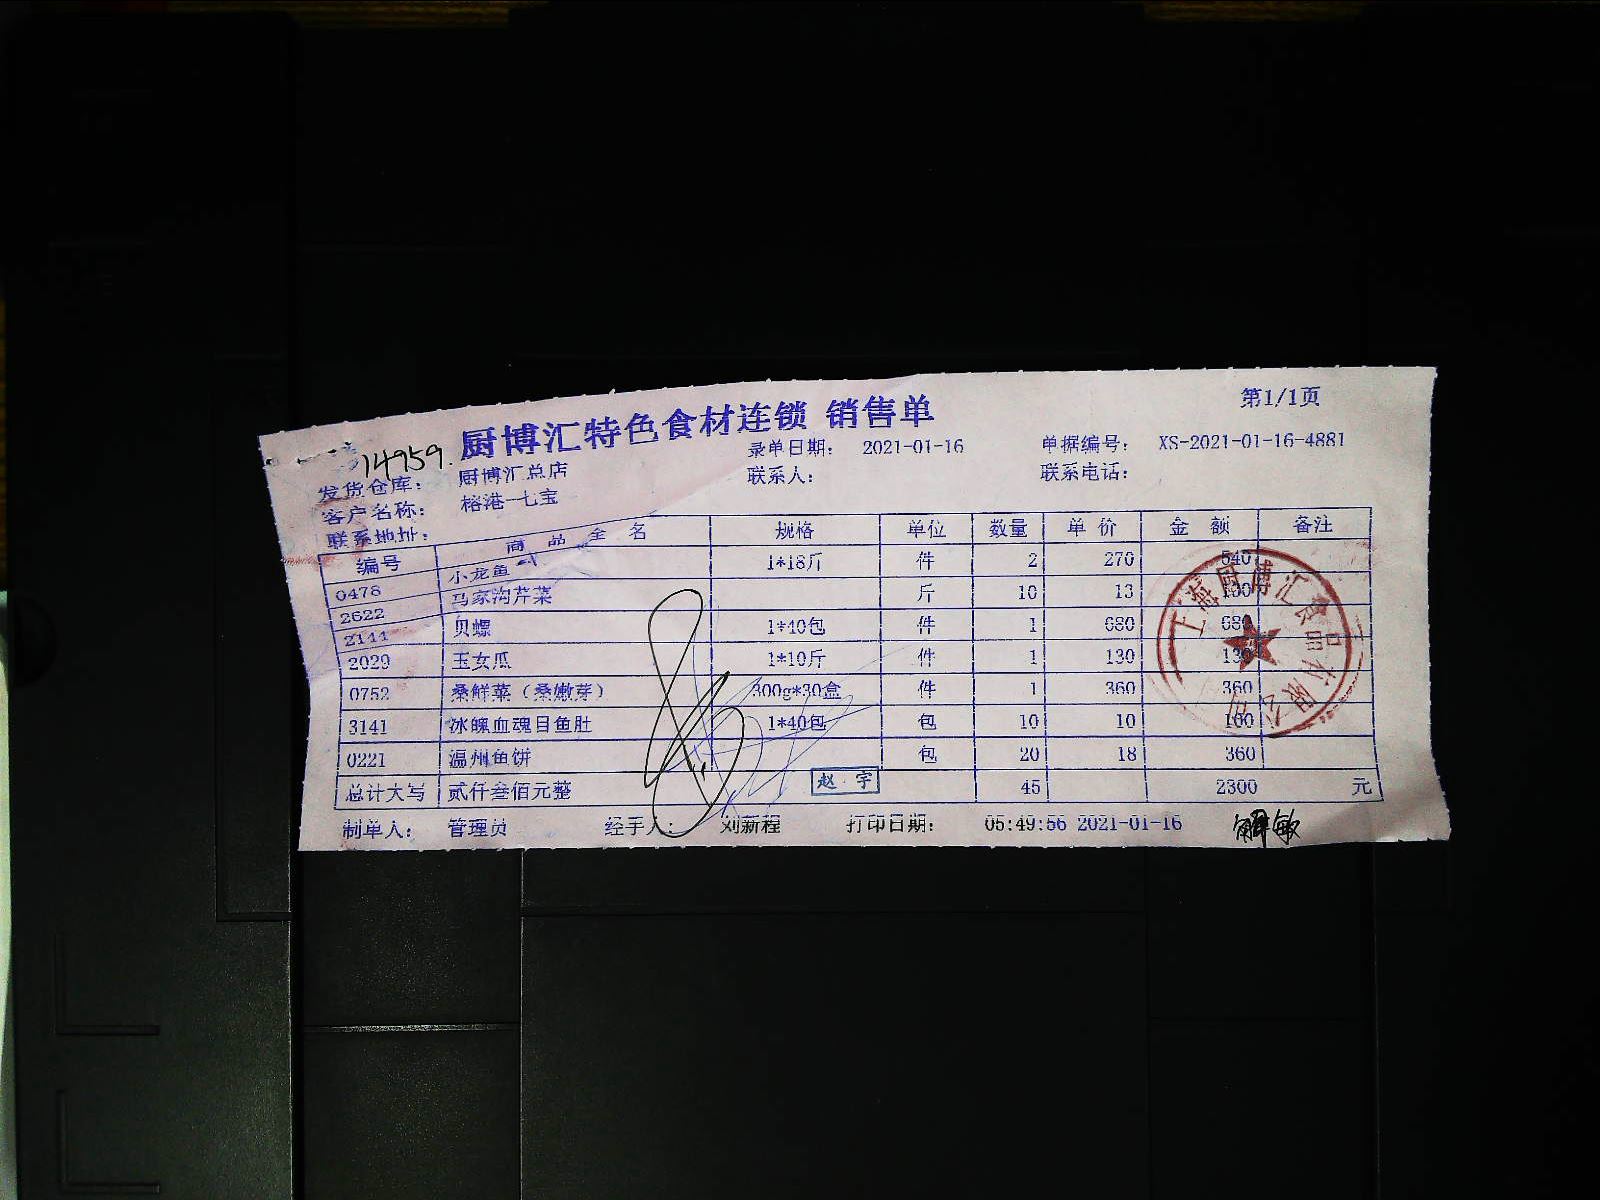 第1/1页
厨博汇特色食材连锁 销售单
14959.
录单日期： 2021-01-16 单据编号： XS-2021-01-16-4881
发货仓库： 厨博汇总店 联系人： 联系电话：
客户名称： 榕港-七宝
联系地址：
编号 商品全名 规格 单位 数量 单价 金额 备注
0478 小龙鱼 1*18斤 件 2 270 540
2622 马家沟芹菜 斤 10 13 130
2144 贝螺 1*40包 件 1 680 680
2029 玉女瓜 1*10斤 件 1 130 130
0752 桑鲜菜（桑嫩芽） 300g*30盒 件 1 360 360
3141 冰魄血魂目鱼肚 1*40包 包 10 10 100
0221 温州鱼饼 包 20 18 360
总计大写 贰仟叁佰元整 45 2300 元
赵宇
制单人： 管理员 经手人： 刘新程 打印日期： 05:49:56 2021-01-16 解敏
上海厨博汇食品有限公司